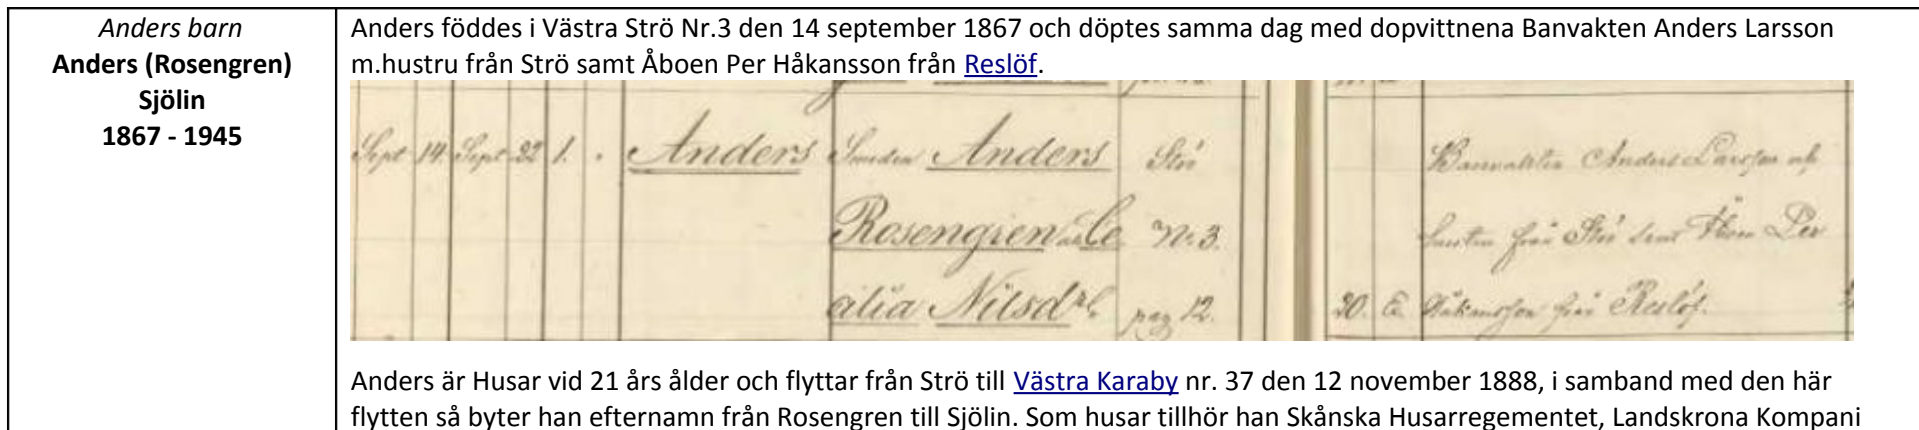 Anders barn
Anders (Rosengren)
Sjölin
1867 - 1945
Anders föddes i Västra Strö Nr.3 den 14 september 1867 och döptes samma dag med dopvittnena Banvakten Anders Larsson
m.hustru från Strö samt Åboen Per Håkansson från Reslöf.
Sept 14 Sept 22 1. Anders Smeden Anders Strö Banvakten Anders Larsson och
Rosengren Ce No 3. hustru från Strö samt Åboen Per
cilia Nilsdr pag 12. 20. E. Håkansson från Reslöf.
Anders är Husar vid 21 års ålder och flyttar från Strö till Västra Karaby nr. 37 den 12 november 1888, i samband med den här
flytten så byter han efternamn från Rosengren till Sjölin. Som husar tillhör han Skånska Husarregementet, Landskrona Kompani